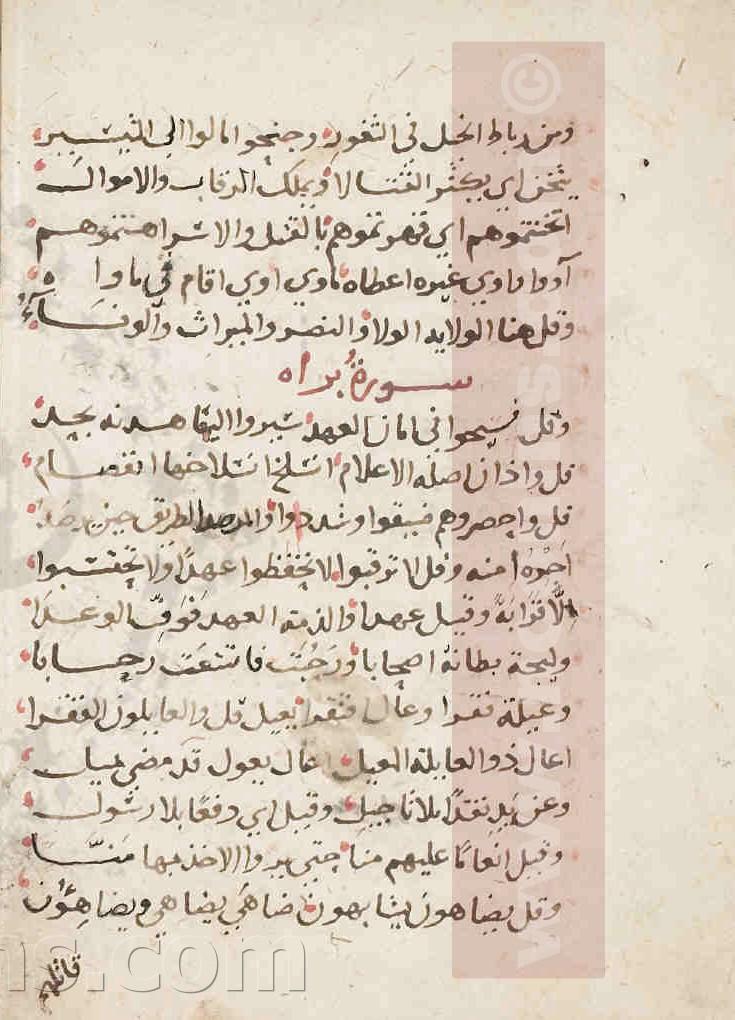 ومن رباط الخيل في الثغور وجنحوا مالوا الي التيسير
يثخن اي يكثر القتالا ويملك الرقاب والاموال
اثخنتموهم اي قهرتموهم بالقتل والاسر اهنتموهم
آووا ياوي غيره اعطاه ماوي اوي اقام في ماواه
وقل هنا الولايه الولا والنصر والميراث والونساء
سورة براه
وقل فسيحوا في امان العهد سيروا اليها هدنه بجد
قل واذان اصله الاعلام انسلخ انسلاخها انفصام
قل واحصروهم ضيقوا وشددوا والمرصد الطريق حين يرصد
اجره امنه وقل لا ترقبوا لا تحفظوا عهدا ولا تحتسبوا
إلا قرابة وقيل عهدا والذمه العهد فوفّ الوعدا
وليجة بطانة اصحابا ورحبت فاتسعت رحابا
وعيلة فقرا وعال فقرا يعيل قل والعايلون الفقرا
اعال ذو العايلة المعيل عال يعول قد مضي يميل
وعن يد نقدا بلا تاجيل وقيل اي دفعا بلا رسول
وقيل انعاما عليهم منا حتي يروا الاخذ منها منّا
وقل يضاهون يشابهون ضاهي يضاهي ويضاهؤن
قاتله
ns.com
©